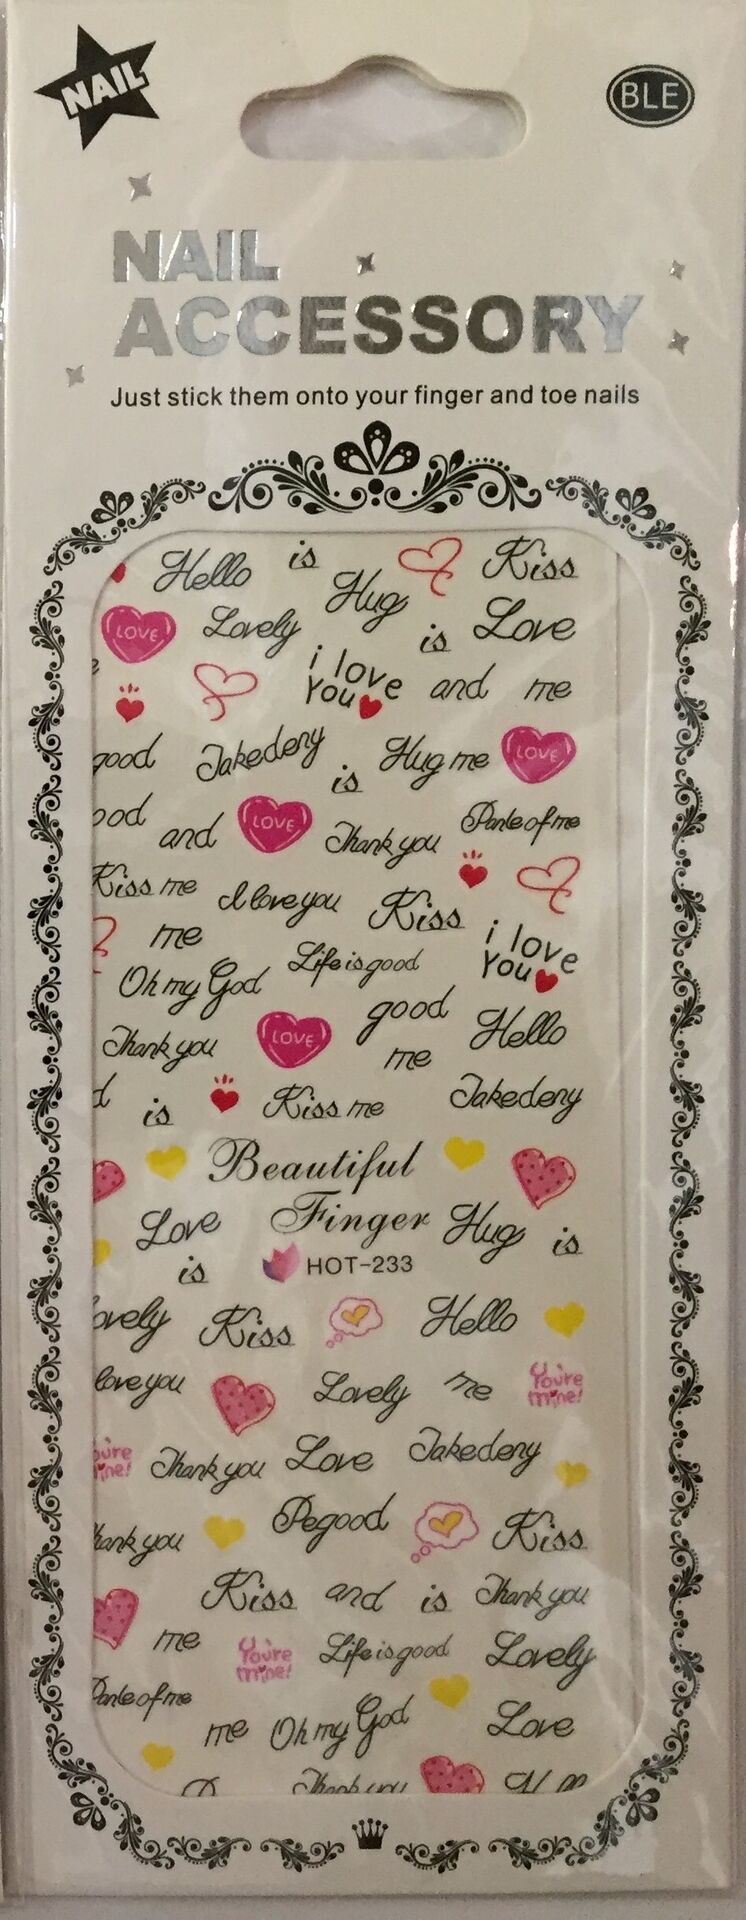 NAIL
BLE
NAIL
ACCESSORY
Just stick them onto your finger and toe nails
Hello is Kiss
Hug
LOVE Lovely is Love
i love
You and me
good Takedeny is Hug me LOVE
ood and LOVE Thank you Parleofme
Kiss me I love you Kiss
me i love
You
Oh my God Life is good
good
Thank you LOVE me Hello
d is Kiss me Takedeny
Beautiful
Love Finger Hug is
is HOT-233
ovely Kiss Hello
love you Lovely me You're
mine!
ou're
ine! Thank you Love Takedeny
hank you Pegood Kiss
Kiss and is Thank you
me You're
mine! Life is good Lovely
Parleofme
me Oh my God Love
Thank you